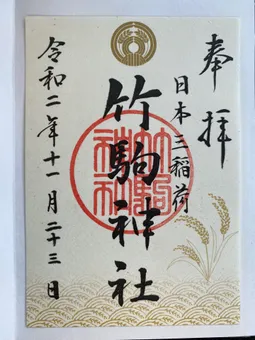 奉拝
日本三稲荷
竹駒神社
令和二年十一月二十三日